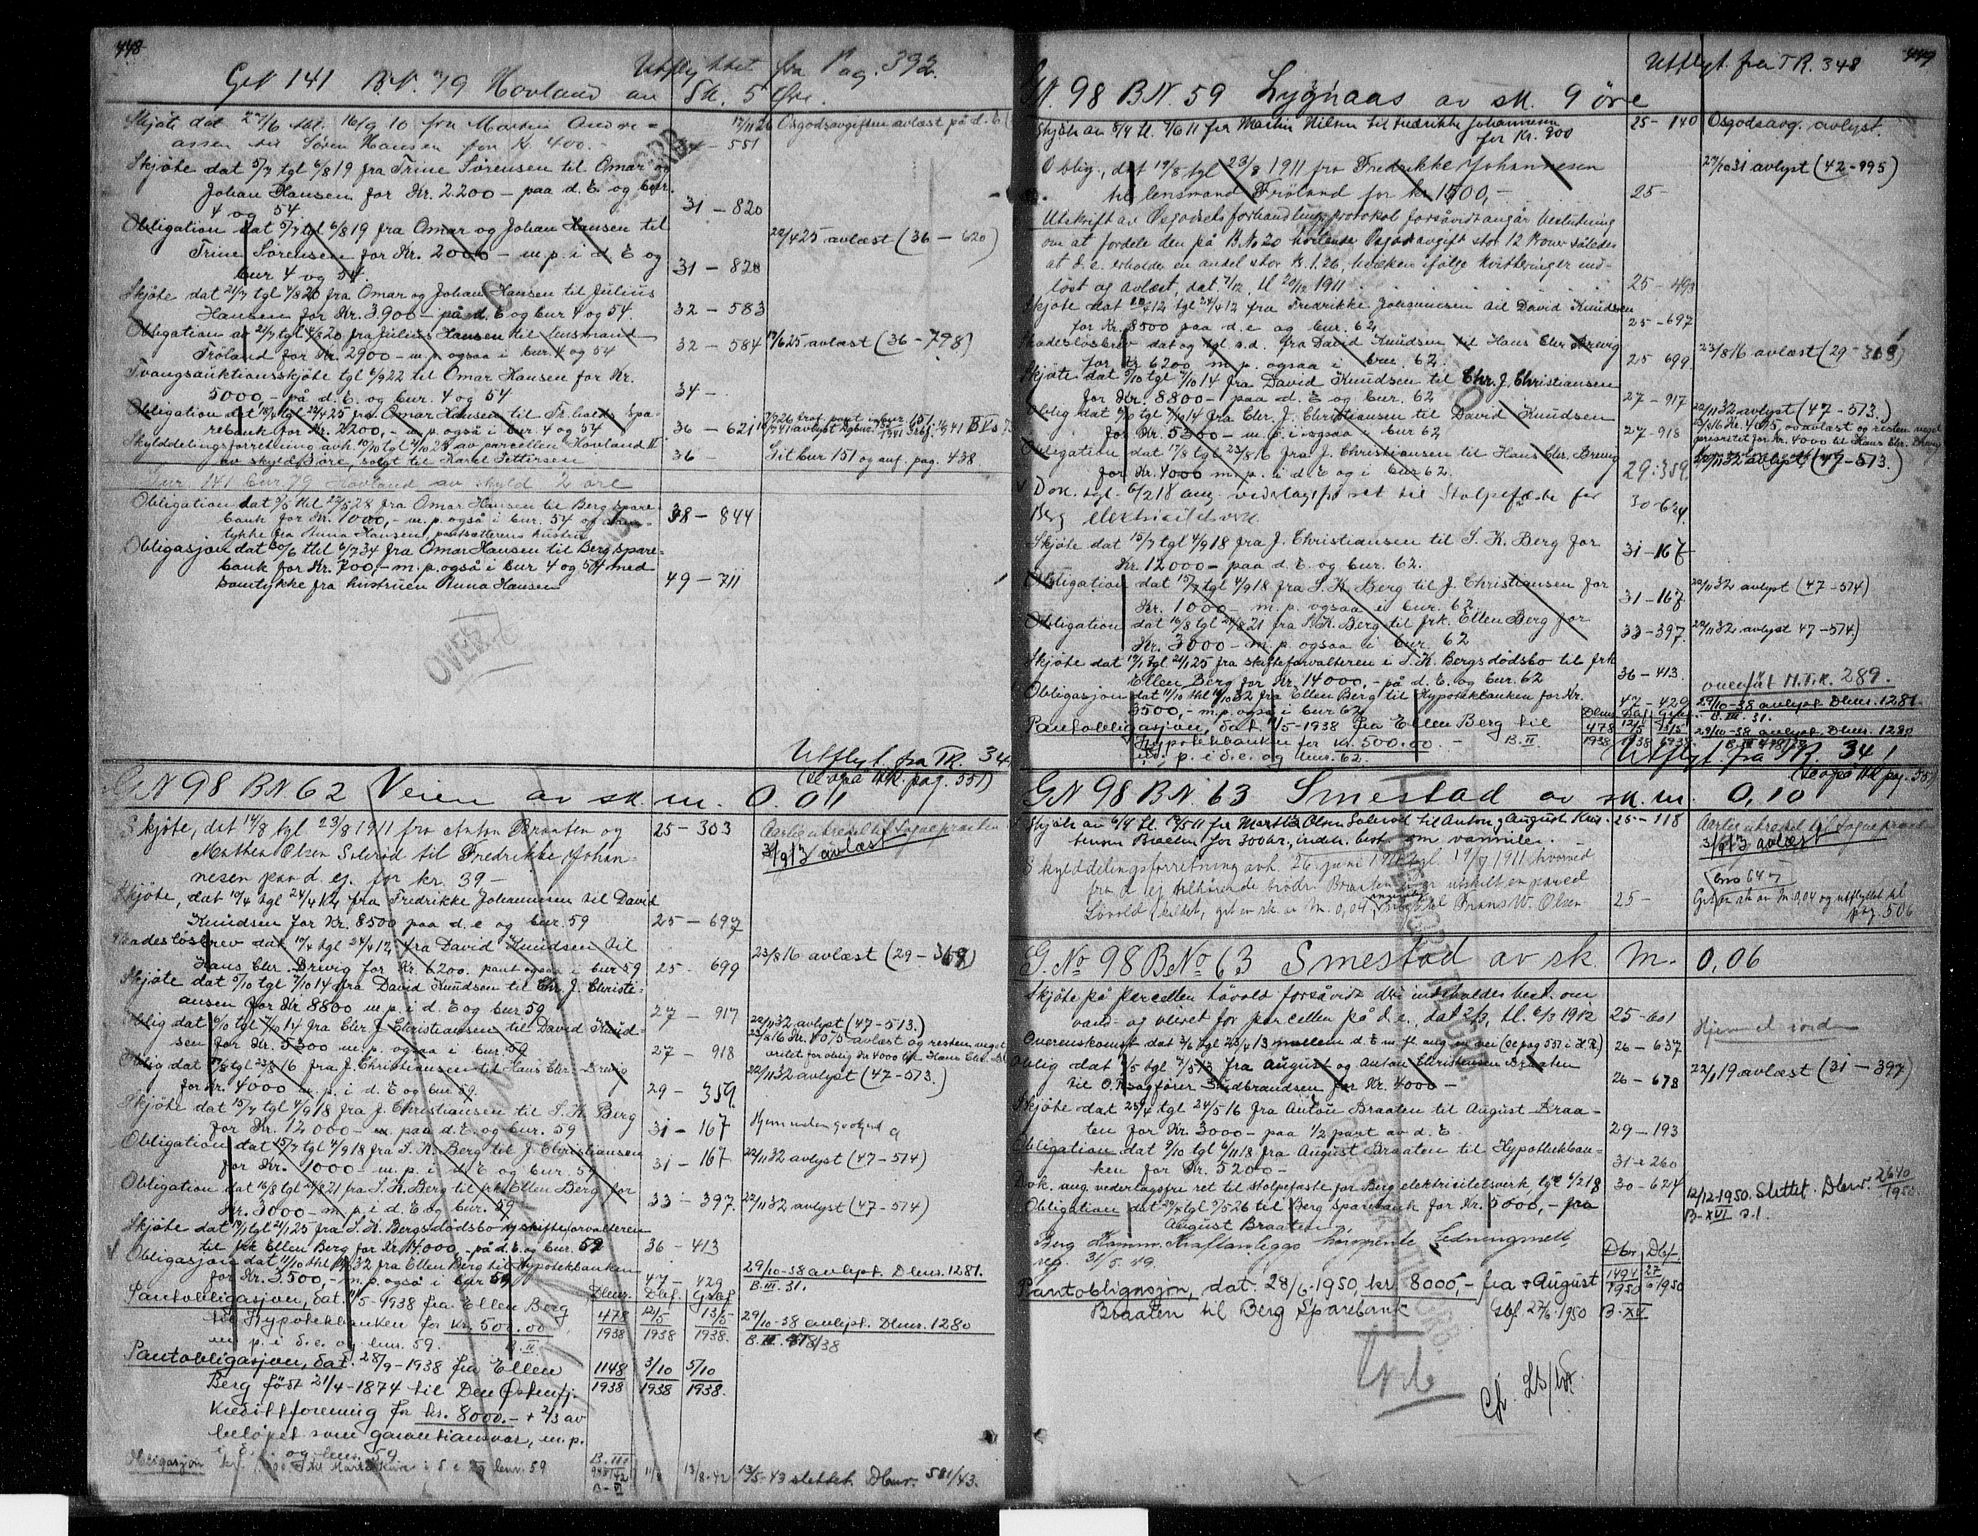 448
Utflyttet fra Pag. 392.
GN 141 BN. 79 Hovland av Sk. 5 Øre.
Skjøte dat 27/6 thl. 16/9 10 fra Martin Andre-
assen til Søren Hansen for Kr. 400.-
551
17/11 26 Osgodsavgiften avlæst på d. E
Skjøte dat 5/7 tgl 6/8 19 fra Trine Sørensen til Omar og
Johan Hansen for Kr. 2.200 - paa d. E og bnr.
4 og 54.
31 - 820
Obligation dat 5/7 tgl 6/8 19 fra Omar og Johan Hansen til
Trine Sørensen for Kr. 2000 - m. p. i d. E og
bnr 4 og 54.
31 - 820
22/4 25 avlæst (36 - 620)
Skjøte dat 21/7 tgl 4/8 20 fra Omar og Johan Hansen til Julius
Hansen for Kr. 3.900 - på d. E og bnr 4 og 54.
32 - 583
Obligation av 21/7 tgl 4/8 20 fra Julius Hansen til lensmand
Frøland for Kr. 2900 - m. p. ogsaa i bnr. 4 og 54
32 - 584
17/6 25 avlæst (36 - 798)
Tvangsauktionsskjøte tgl 6/9 22 til Omar Hansen for Kr.
5000, - på d. E. og bnr. 4 og 54
34 -
Obligation dat 18/4 tgl 22/4 25 fra Omar Hansen til Fr.halds Spa-
rebank for Kr. 2200, - m. p. også i bnr. 4 og 54
36 - 621
Skylddelingsforretning avh. 10/10 tgl 2/10 25 av parcellen Hovland II
av skyld 3 øre, solgt til Karel Pettersen
36 -
Git bnr 151 og anf. pag. 438
Gnr. 141 bnr. 79 Hovland av skyld 2 øre
Obligation dat 9/5 thl 22/5 28 fra Omar Hansen til Berg spare-
bank for Kr. 1000, - m. p. også i bnr. 54 og sam-
tykke fra Anna Hansen, pantsætterens hustru
38 - 844
Obligasjon dat 30/6 thl 6/7 34 fra Omar Hansen til Berg spare-
bank for Kr. 700, - m. p. også i bnr 4 og 54 med
samtykke fra hustruen Anna Hansen
49 - 711
OVERF.
Utflyt. fra TR. 34
(se også TR. pag. 551)
GN 98 BN 62 Veien av sk. m. 0.01
Skjøte, dat 14/8 tgl 23/8 1911 fra Anton Braaten og
Mathea Olsen Solerød til Fredrikke Johan-
nesen paa d. ej. for kr. 39 -
25 - 303
Aarlig utredsel til Sogne præsten
3/9 13 avlæst
Skjøte, dat 10/4 tgl 24/4 12, fra Fredrikke Johannesen til David
Knudsen for Kr. 8500 paa d. e og bnr. 59
25 - 697
Skadesløsbrev dat 10/4 tgl 24/4 12, fra David Knudsen til
Hans Chr. Drevig for Kr. 6200. pant ogsaa i bnr 59
25 - 699
23/8 16 avlæst (29 - 359)
Skjøte dat 5/10 tgl 7/10 14 fra David Knudsen til Chr. J. Christi-
ansen for Kr 8800 m. p. i d. E og bnr 59
27 - 917
Oblig dat 6/10 tgl 7/10 14 fra Chr. J. Christiansen til David Knud-
sen for Kr. 5300 m. p. ogsaa i bnr. 59
27 - 918
22/11 32 avlyst (47 - 513.)
Oblig dat 17/8 tgl 23/8 16 fra J. Christiansen til Hans Chr. Drevig
for Kr. 4000 m. p. i d. E og bnr 59.
29 - 359
22/11 32 avlyst (47 - 513.)
Skjøte dat 15/7 tgl 4/9 18 fra J. Christiansen til S. K. Berg
for Kr. 12 000 - paa d. E og bnr. 59
31 - 167
Obligation dat 15/7 tgl 4/9 18 fra S. K. Berg til J. Christiansen
for Kr. 1000 - m. p. i d. E og bnr. 59
31 - 167
22/11 32 avlyst (47 - 514)
Obligation dat 16/8 tgl 24/8 21 fra S. K. Berg til frk Ellen Berg for
Kr. 3000 - m. p. i d. E og bnr. 59
33 - 397.
22/11 32 avlyst (47 - 514)
Skjøte dat 17/1 tgl 21/1 25 fra S. K. Bergs dødsbo v/ skifteforvalteren
til frk Ellen Berg for Kr. 14.000, - på d. E og bnr. 59
36 - 413
Obligasjon dat 11/10 thl 14/10 32 fra Ellen Berg til Hypotekbanken
for Kr. 3.500, - m. p. også i bnr 59
47 - 429
29/10-38 avlyst. Dbnr. 1281.
B. III. 31.
Pantobligasjon, dat 11/5-1938 fra Ellen Berg
til Hypotekbanken for kr. 500.00
m. p. i d. e. og bnr. 59. B. II
Dbnr. Dbf. Gbf.
478/1938 12/5 1938 13/5 1938.
29/10-38 avlyst. Dbnr. 1280
B. III. 478/38
Pantobligasjon, dat. 28/9-1938 fra Ellen
Berg født 21/4-1874 til Den Østenfj.
Kredittforening for kr. 8000.- + 2/3 av
beløpet som garantiansvar, m. p.
i d. e. og bnr. 59
1148/1938 3/10 1938 5/10 1938.
B. III
Obligasjon
i d. e og bnr. 59
11/8 13/8-42
13/5-43 slettet. Dbnr. 581/43.
449
Utflyt. fra TR. 348
GN. 98 BN. 59 Lygnaas av sk. 9 øre
Skjøte av 5/4 tl. 9/6 11 fra Martin Nilsen til Fredrikke Johannesen
for Kr. 900
25 - 140
Osgodsavg. avlyst.
Oblig., dat 19/8 tgl 23/8 1911 fra Fredrikke Johannesen
til lensmand Frøland for kr 1500, -
25 -
27/10 31 avlyst (42 - 995)
Utskrift av Osgodsets forhandlingsprotokol forsåvidt angår beslutning
om at fordele den på B No 20 hvilende Osgodsavgift stor 12 Kroner således
at d. e. erholder en andel stor Kr. 1.26, hvilken ifølge kvitteringer ind-
løst og avlæst, dat. 7/12, tl 20/12 1911
25 - 493
Skjøte dat 10/4 12 tgl 24/4 12 fra Fredrikke Johannesen til David Knudsen
for Kr. 8500 paa d. e og bnr. 62
25 - 697
Skadesløsbrev dat og tgl s. d. fra David Knudsen til Hans Chr Drevig
for Kr 6200 m. p. ogsaa i bnr. 62.
25 699
23/8 16 avlæst (29 - 359)
Skjøte dat 5/10 tgl 7/10 14 fra David Knudsen til Chr. J. Christiansen
for Kr. 8800 - paa d. E og bnr. 62
27 - 917
Oblig dat 6/10 tgl 7/10 14 fra Chr. J. Christiansen til David Knudsen
for Kr. 5300 - m. p. i ogsaa i bnr 62
27 - 918
22/11 32 avlyst (47 - 513.)
Obligation dat 17/8 tgl 23/8 16 fra J. Christiansen til Hans Chr. Drevig
for Kr. 4000 m. p. i d. E og i bnr 62.
29: 359
22/11 32 avlyst (47 - 513.)
Dok. tgl. 6/2 18 ang. vederlagsfri ret til Stolpefæste for
Berg elektricitetsverk
30 - 624.
Skjøte dat 15/7 tgl 4/9 18 fra J. Christiansen til S. K. Berg for
Kr. 12000 - paa d. E. og bnr. 62.
31 - 167
Obligation dat 15/7 tgl 4/9 18 fra S. K. Berg til J. Christiansen for
Kr. 1000 - m. p. ogsaa i bnr. 62
31 - 167
22/11 32 avlyst (47 - 514)
Obligation dat 16/8 tgl 24/8 21 fra S. K. Berg til frk. Ellen Berg for
Kr. 3000 - m. p. ogsaa i bnr. 62
33 - 397.
22/11 32 avlyst 47 - 514)
Skjøte dat 17/1 tgl. 21/1 25 fra skifteforvalteren i S. K. Bergs dødsbo til frk
Ellen Berg for Kr. 14000, - på d. E og bnr. 62
36 - 413.
overført N.T.R. 289.
Obligasjon dat 11/10 thl 14/10 32 fra Ellen Berg til Hypotekbanken for Kr.
3500, - m. p. også i bnr 62
47 - 429
29/10-38 avlyst Dbnr. 1281.
B. III. 31.
Pantobligasjon, dat 11/5-1938 fra Ellen Berg til
Hypotekbanken for kr. 500.00 - B. II
m. p. i d. e. og bnr. 62.
Dbnr Dbf Gbf
478/1938 12/5 1938 13/5 1938
29/10-38 avlyst. Dbnr. 1280
B. III 478/38
Utflyt. fra TR. 341
(se også TR pag. 551)
GN 98 BN. 63 Smestad av sk. m. 0,10
25 - 118
Aarlig utredsel til Sogne præst
3/9 13 avlæst
Skylddelingsforretning avh. 26 juni 1911 tgl. 19/7 1911 hvorved
fra d. ej tilhørende brødr. Braaten er utskilt en parcel
Løvold kaldet, git en sk. av M. 0,04 til Brans W. Olsen
25 -
bno 64
Git en sk av M. 0,04 og utflyttet til
pag. 506
G. No 98 B No 63 Smestad av sk M. 0,06
Skjøte på parcellen Løvold forsåvidt den indeholdes best. om
vand- og veiret for parcellen på d. e., dat. 2/3, tl. 6/3 1912
25 - 601
Hjemmel i orden
26 - 637
Oblig dat 9/5 tgl 14/5 13 fra August og Anton Christensen Braaten
til O.r.sagfører Gudbrandsen for Kr. 4000 -
26 - 678
22/1 19 avlæst (31 - 397)
Skjøte dat 25/4 tgl 24/5 16 fra Anton Braaten til August Braa-
ten for Kr. 3000 - paa 1/2 part av d. E.
29 - 193
Obligation dat 9/10 tgl 6/11 18 fra August Braaten til Hypotekban-
ken for Kr. 5200 -
31 - 260
Dok. ang vederlagsfri ret til stolpefæste for Berg elektricitetsverk tgl 6/2 18
30 - 624
12/12-1950. Slettet. Dbnr. 2640/1950
B- XVI s. 1.
Obligation dat 29/4 tgl 7/5 26 til Berg Sparebank for Kr. 5000, - fra
August Braaten
Berg Komm. Kraftanleggs Ledningsnett,
reg. 31/5. 49.
Dbnr Dbf.
Pantobligasjon, dat. 28/6-1950, kr. 8000,- fra August
Braaten til Berg Sparebank gbf. 27/6 1950
1494/1950 27/6 1950
B-XV